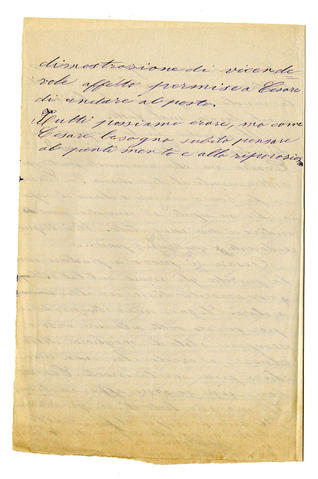 dimostrazione di vicende
vole affetto permise a Cesare
di andare al posto.
Tutti possiamo erare, ma come
Cesare bisogna subito pensare
al pentimento e alla riparazion